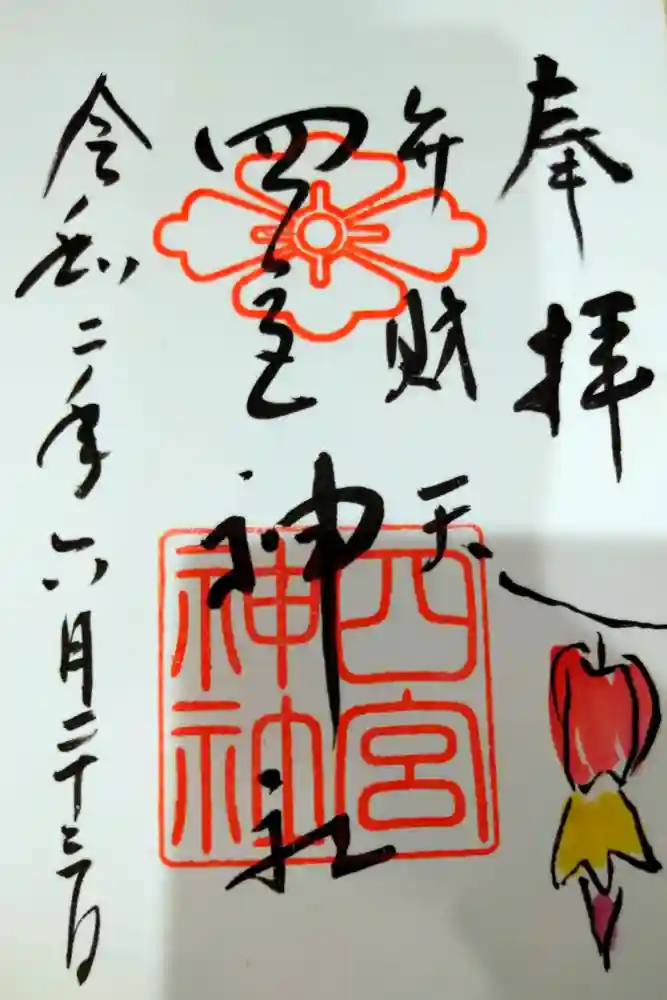 奉拝
弁財天
四宮神社
四宮神社
令和二年六月二十三日